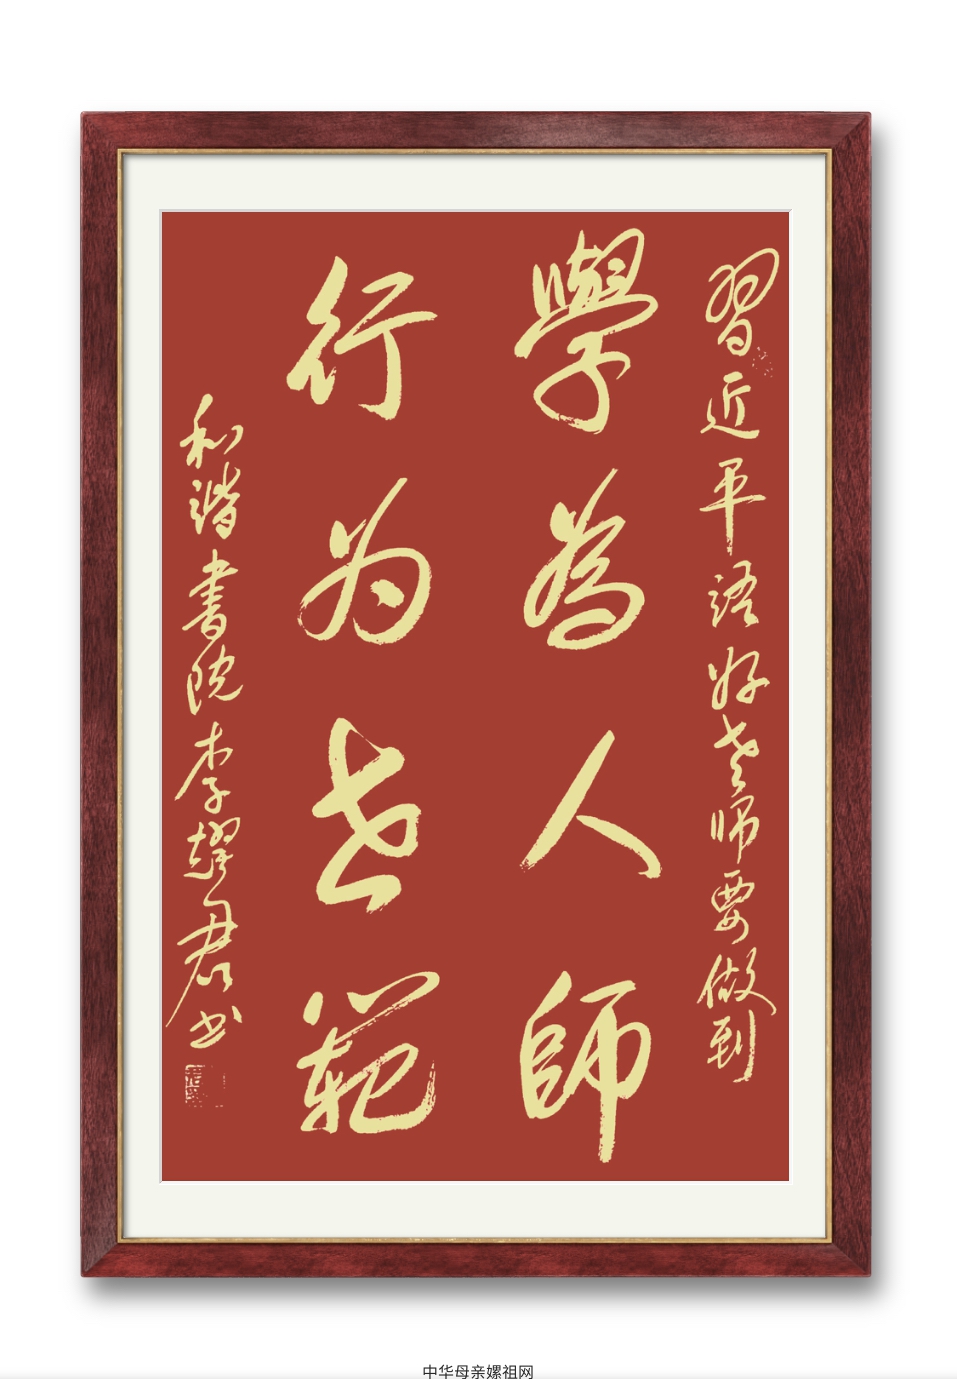 習近平語好老师要做到
學為人師
行为世範
和谐書院李耀君书
中华母亲嫘祖网